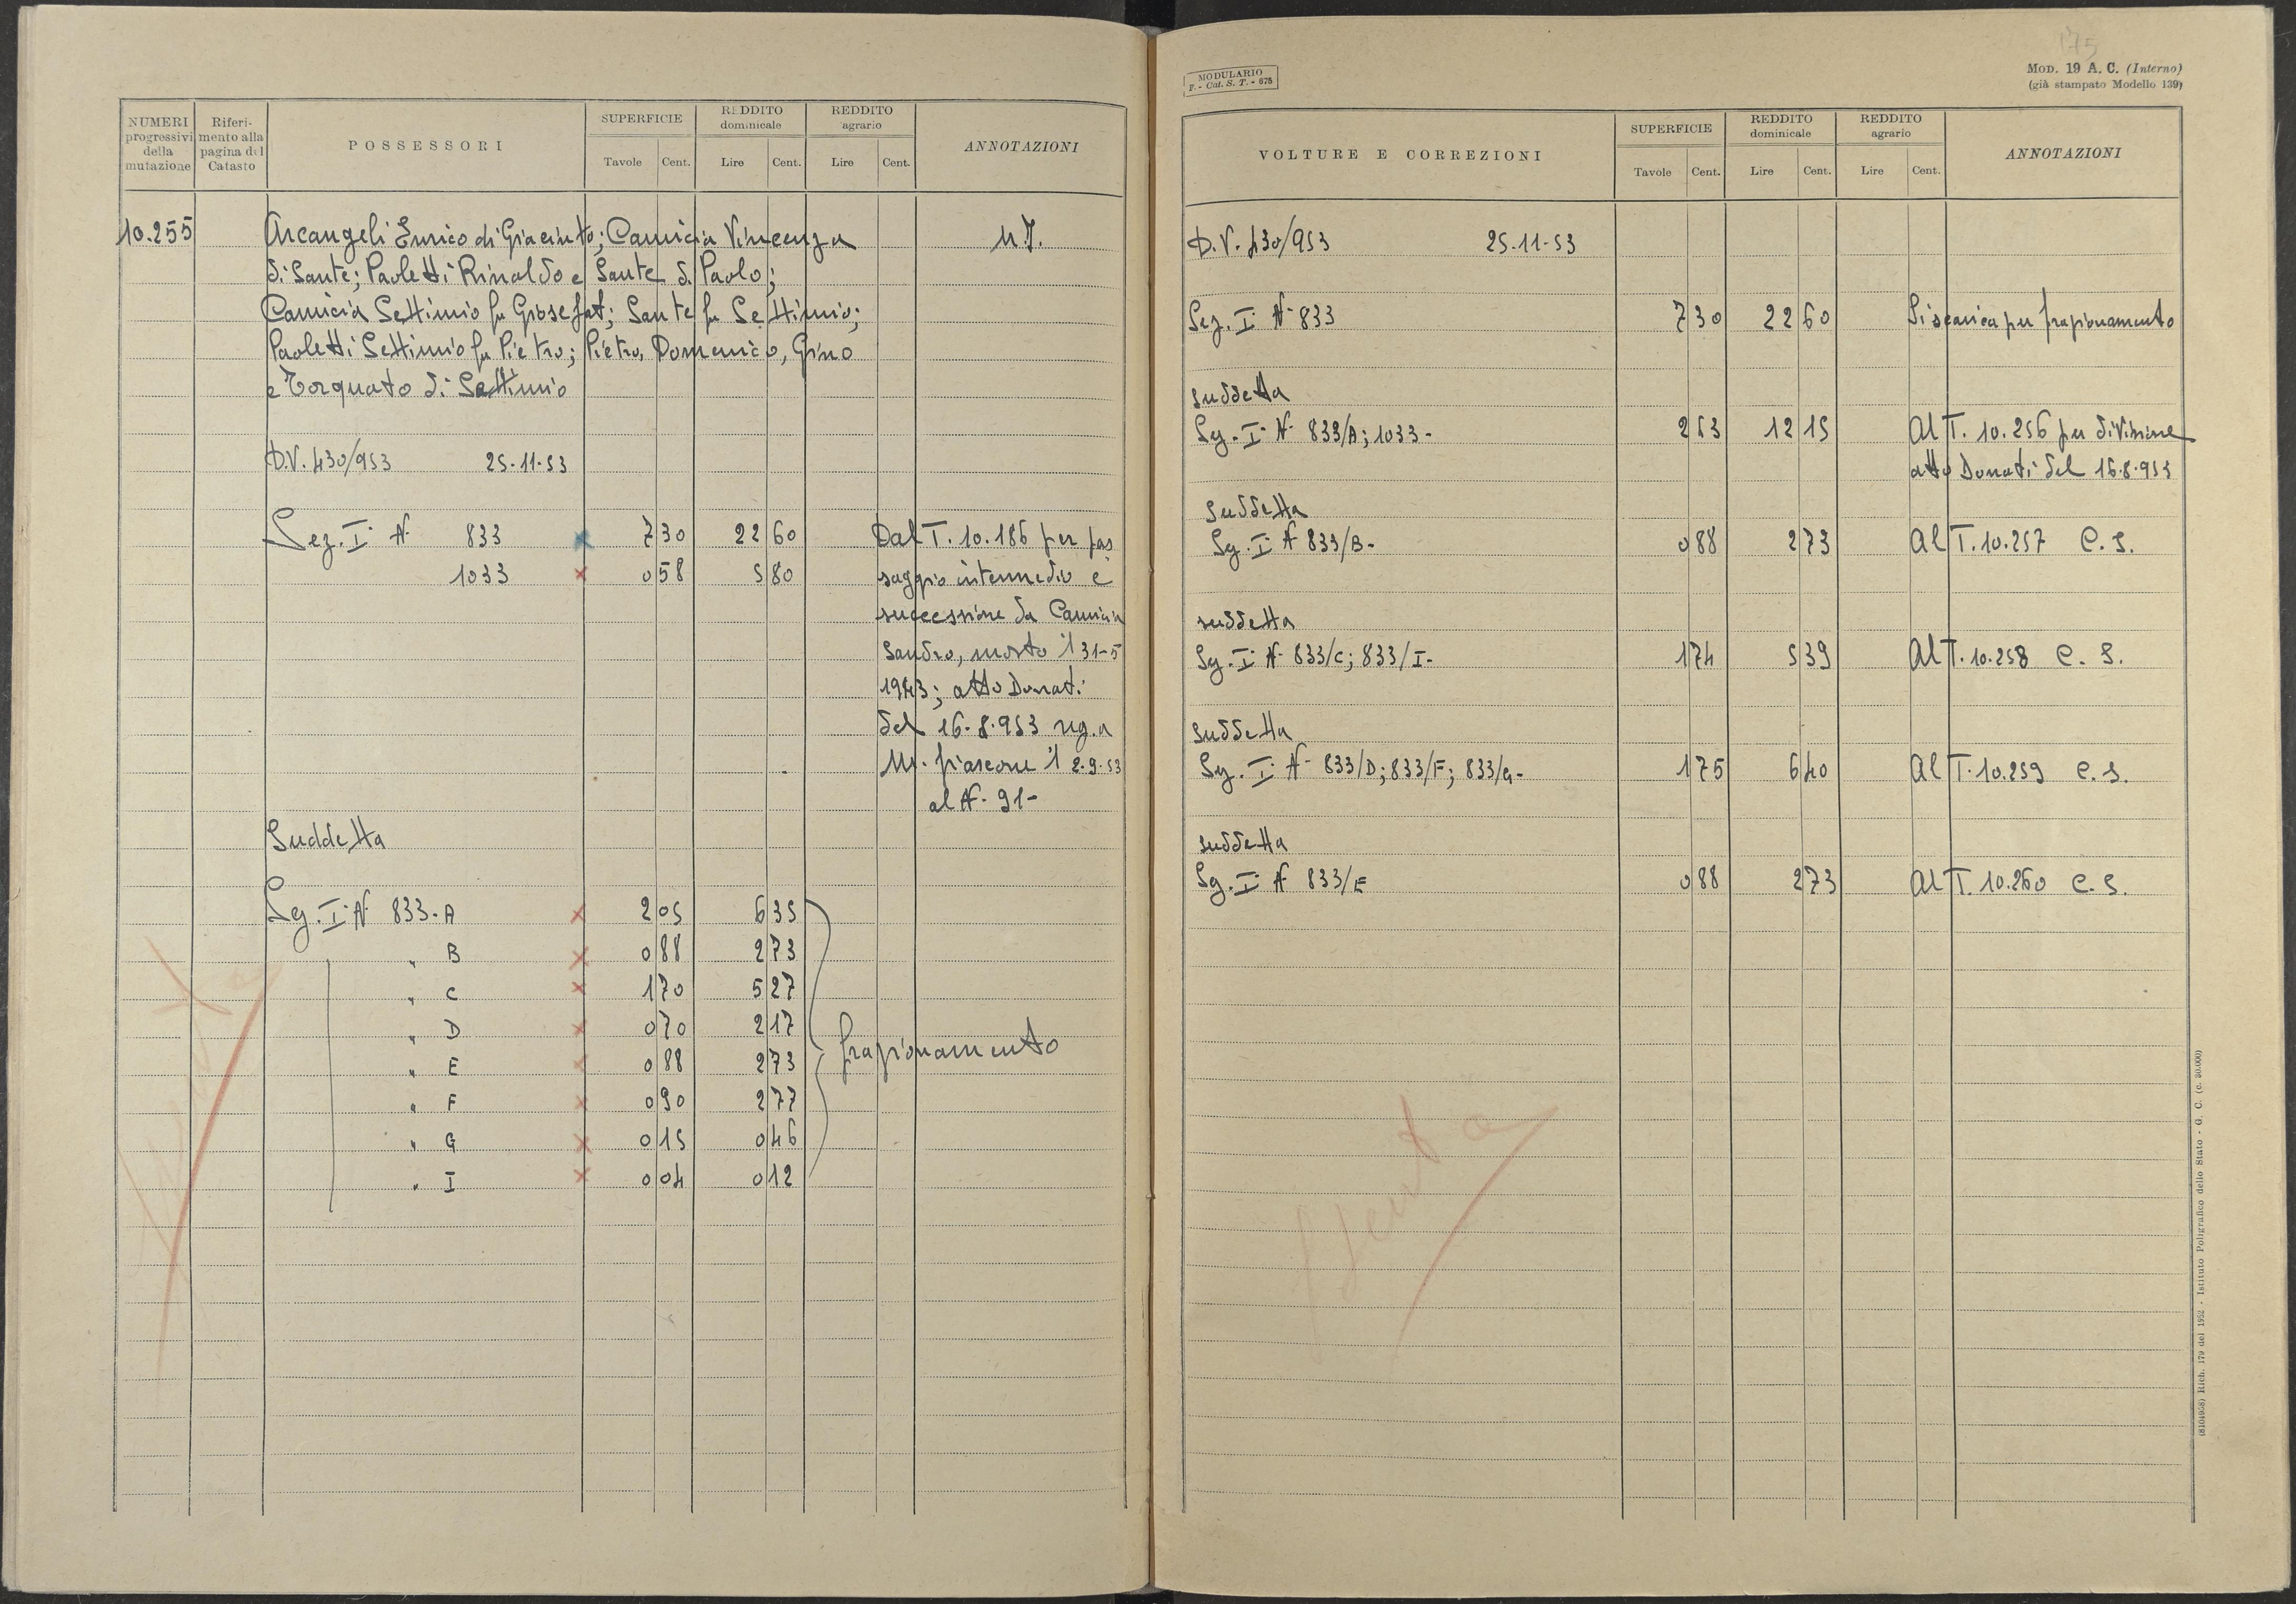 NUMERI progressivi della mutazione | Riferimento alla pagina del Catasto | POSSESSORI | SUPERFICIE Tavole Cent. | REDDITO dominicale Lire Cent. | REDDITO agrario Lire Cent. | ANNOTAZIONI
10.255 Arcangeli Enrico di Giacinto; Camicia Vincenza
di Sante; Paoletti Rinaldo e Sante di Paolo;
Camicia Settimio fu Giosefat; Sante fu Settimio;
Paoletti Settimio fu Pietro; Pietro, Domenico, Gino
e Torquato di Settimio
D.V. 430/953 25-11-53
Sez. I N 833 7 30 22 60 Dal T. 10.186 per pas
1033 0 58 5 80 saggio intermedio e
successione da Camicia
Sandro, morto il 31-5
1943; atto Donati
del 16-8-953 reg. a
M. fiascone il 2.9.53
al N- 91-
Suddetta
Sez. I N 833-A 2 05 6 35
" B 0 88 2 73
" C 1 70 5 27
" D 0 70 2 17
frazionamento
" E 0 88 2 73
" F 0 90 2 77
" G 0 15 0 46
" I 0 04 0 12
MODULARIO
F. - Cat. S. T. - 678
175
MOD. 19 A. C. (Interno)
(già stampato Modello 139)
VOLTURE E CORREZIONI | SUPERFICIE Tavole Cent. | REDDITO dominicale Lire Cent. | REDDITO agrario Lire Cent. | ANNOTAZIONI
D.V. 430/953 25-11-53
Sez. I N- 833 7 30 22 60 Si scarica per frazionamento
suddetta
Sez. I N- 833/A; 1033- 2 63 12 15 Al T. 10.256 per divisione
atto Donati del 16-8-953
Suddetta
Sez. I N 833/B- 0 88 2 73 Al T. 10.257 C. S.
suddetta
Sez. I N- 833/C; 833/I- 1 74 5 39 Al T. 10.258 C. S.
suddetta
Sez. I N- 833/D; 833/F; 833/G- 1 75 5 40 Al T. 10.259 C. S.
suddetta
Sez. I N 833/E 0 88 2 73 Al T. 10.260 C. S.
(8104958) Rich. 179 del 1952 - Istituto Poligrafico dello Stato - G. C. (c. 30.000)